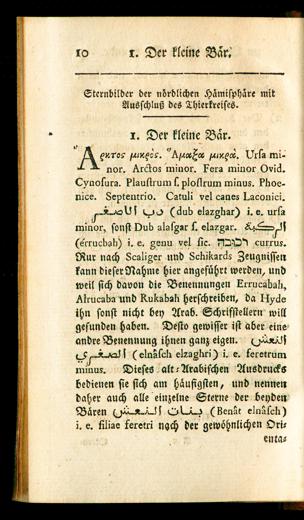 10 1. Der kleine Bär.
Sternbilder der nördlichen Hämisphäre mit
Ausschluß des Thierkreises.
1. Der kleine Bär.
Αρκτος μικρὸς. Ἅμαξα μικρὰ. Ursa mi-
nor. Arctos minor. Fera minor Ovid.
Cynosura. Plaustrum s. plostrum minus. Phoe-
nice. Septentrio. Catuli vel canes Laconici.
دب الاصغر (dub elazghar) i. e. ursa
minor, sonst Dub alasgar s. elazgar. الركبة
(érrucbah) i. e. genu vel sic. רכובה currus.
Nur nach Scaliger und Schikards Zeugnissen
kann dieser Nahme hier angeführt werden, und
weil sich davon die Benennungen Errucabah,
Alrucaba und Rukabah herschreiben, da Hyde
ihn sonst nicht bey Arab. Schriftstellern will
gefunden haben. Desto gewisser ist aber eine
andre Benennung ihnen ganz eigen. النعش
الصغري (elnâsch elzaghri) i. e. feretrum
minus. Dieses alt-Arabischen Ausdrucks
bedienen sie sich am häufigsten, und nennen
daher auch alle einzelne Sterne der beyden
Bären بنات النعش (Benât elnâsch)
i. e. filiae feretri nach der gewöhnlichen Ori-
enta-